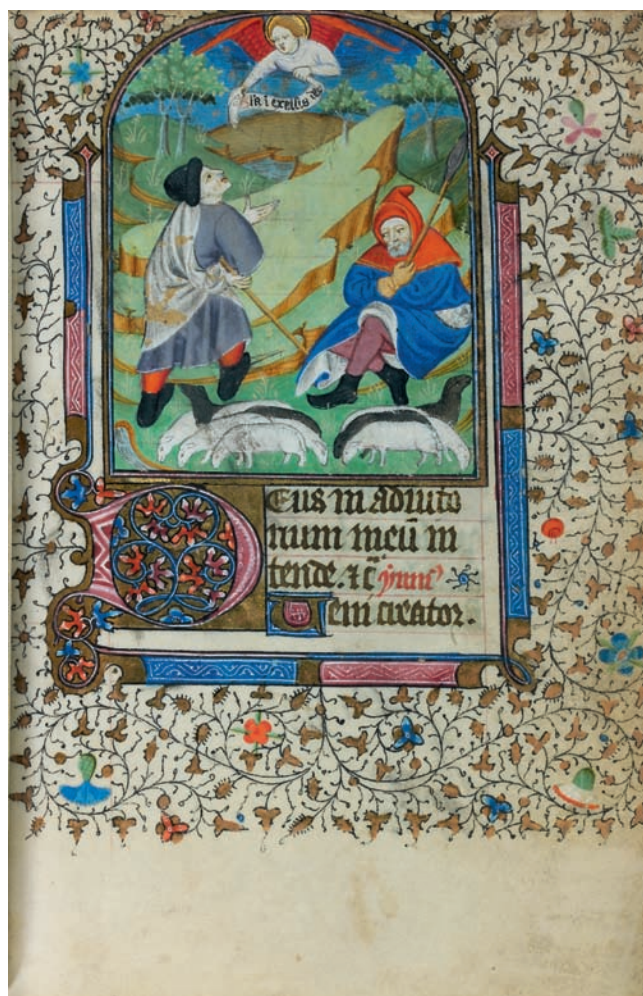 i excelsis
Deus in adiuto
rium meū in
tende. ⁊ c̄ ymn⁹
Veni creator.